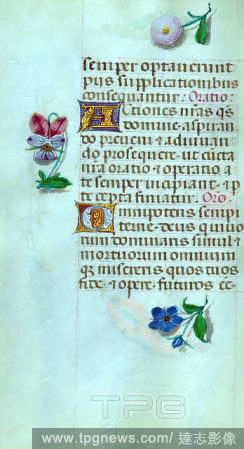 semper optauerunt
pijs supplicationibus
consequantur. Oratio.
Actiones nrãs qs
domine aspiran
do preueni et adiuuan
do prosequere ut cucta
nrã oratio et operatio a
te semper incipiant et p
te cepta finiatur. Oro.
Omnipotens sempi
terne deus qui uiuo
rum dominaris simul et
mortuorum omnium
q3 misereris quos tuos
fide et opere futuros ee
TPG
www.tpgnews.com/達志影像